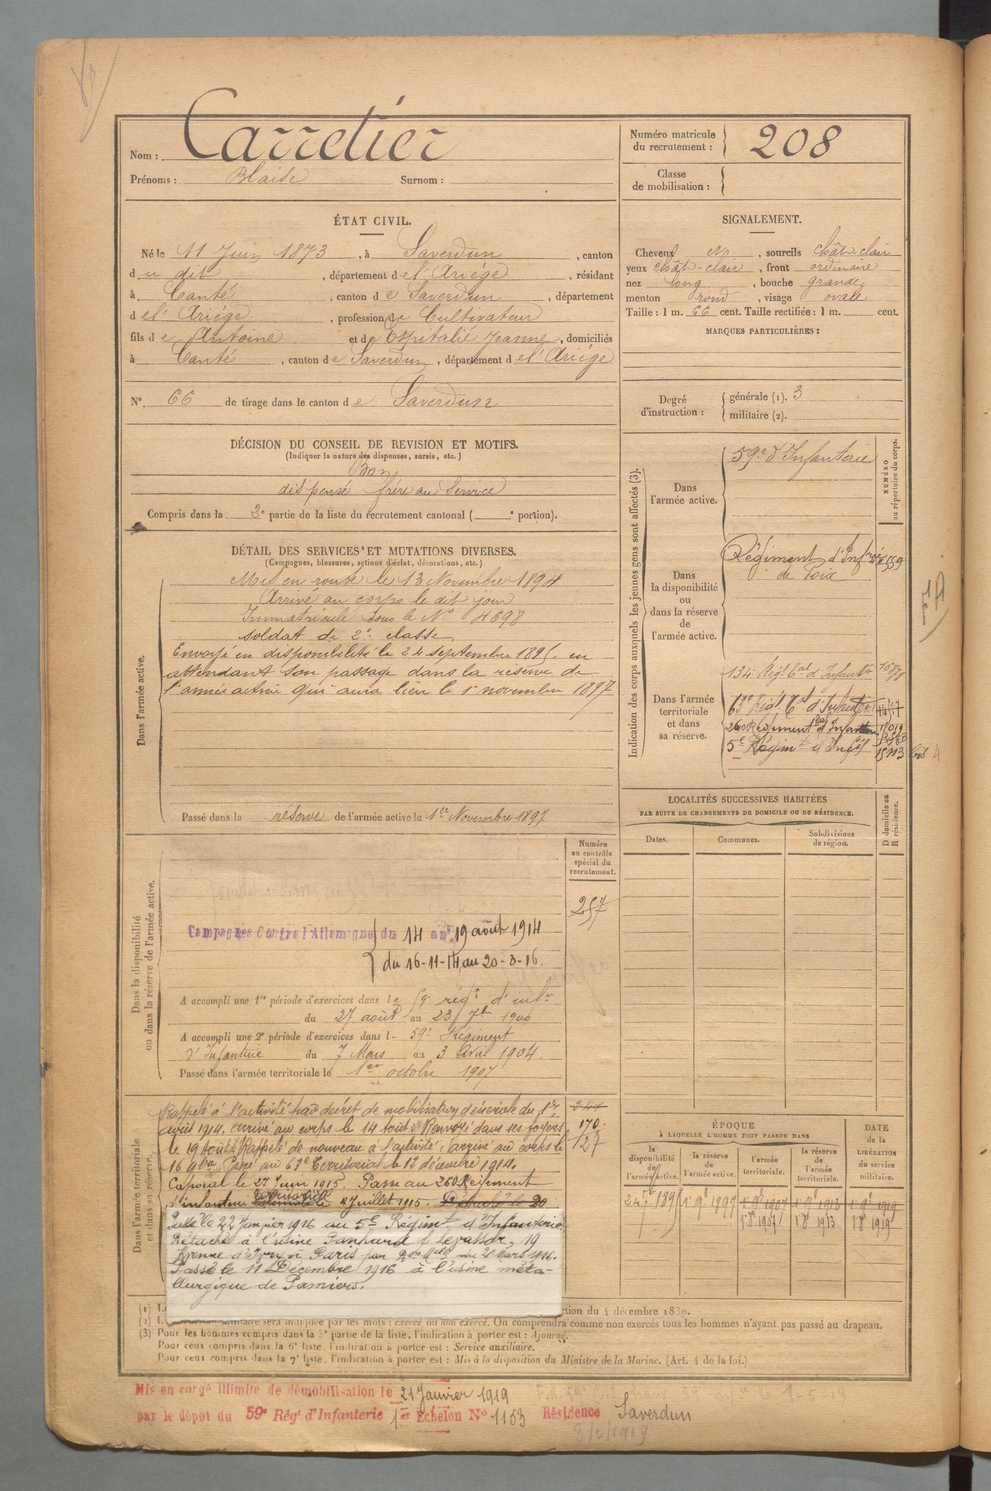 Nom : Carretier
Prénoms : Blaise Surnom :
Numéro matricule du recrutement : 208
Classe de mobilisation :
ÉTAT CIVIL.
Né le 11 Juin 1873, à Saverdun, canton
du dit, département de l'Ariège, résidant
à Canté, canton de Saverdun, département
de l'Ariège, profession de Cultivateur
fils de Antoine et de Espitalié Jeanne, domiciliés
à Canté, canton de Saverdun, département de l'Ariège
N° 66 de tirage dans le canton de Saverdun
SIGNALEMENT.
Cheveux, sourcils chât-clair
yeux chât-clair, front ordinaire
nez long, bouche grande,
menton rond, visage ovale
Taille : 1 m. 66 cent. Taille rectifiée : 1 m. cent.
MARQUES PARTICULIÈRES :
Degré d'instruction : générale (1). 3
militaire (2).
DÉCISION DU CONSEIL DE REVISION ET MOTIFS.
(Indiquer la nature des dispenses, sursis, etc.)
Bon
dispensé frère au Service
Compris dans la 2e partie de la liste du recrutement cantonal ( e portion).
DÉTAIL DES SERVICES ET MUTATIONS DIVERSES.
(Campagnes, blessures, actions d'éclat, décorations, etc.)
Dans l'armée active.
Mis en route le 13 Novembre 1894
Arrivé au corps le dit jour
Immatriculé sous le N° 4698
soldat de 2e classe
Envoyé en disponibilité le 24 septembre 1895, en
attendant son passage dans la réserve de
l'armée active qui aura lieu le 1er novembre 1897
Passé dans la réserve de l'armée active le 1er Novembre 1897
Indication des corps auxquels les jeunes gens sont affectés (3).
NUMÉRO au répertoire du corps.
Dans l'armée active.
59e d'Infanterie
Dans la disponibilité ou dans la réserve de l'armée active.
Régiment d'Infrie
de Foix
Dans l'armée territoriale et dans sa réserve.
134 Régt Cal d'Infantie
63e Régt Cal d'Infantrie
260 Régiment d'Infanterie
5e Régimt d'Infie
LOCALITÉS SUCCESSIVES HABITÉES
PAR SUITE DE CHANGEMENTS DE DOMICILE OU DE RÉSIDENCE.
Dates. Communes. Subdivisions de région. D domicile ou R résidence.
Dans la disponibilité ou dans la réserve de l'armée active.
Numéro au contrôle spécial du recrutement.
257
Campagnes Contre l'Allemagne du 14 au 19 août 1914
du 16-11-14 au 20-3-16.
A accompli une 1re période d'exercices dans le 59e régt d'infie
du 27 août au 23 7bre 1900
A accompli une 2e période d'exercices dans l 59e Régiment
d'Infanterie du 7 Mars au 3 Avril 1904.
Passé dans l'armée territoriale le 1er octobre 1907
Dans l'armée territoriale et dans sa réserve.
Rappelé à l'activité par décret de mobilisation générale du 1er
août 1914. arrivé au corps le 14 août. Renvoyé dans ses foyers
le 19 Août. Rappelé de nouveau à l'activité, arrivé au corps le
16 9bre. Passé au 63e Territorial le 12 décembre 1914.
Caporal le 27 Juin 1915. Passé au 260 Régiment
d'infanterie le 4 Juillet 1915.
170
127
Passé le 22 Janvier 1916 au 5e Régimt d'Infanterie.
Détaché à l'usine Panhard & Levassor, 19
Avenue d'Ivry à Paris par du 21 Mars 1916.
Passé le 11 Décembre 1916 à l'usine méta-
llurgique de Pamiers.
ÉPOQUE
A LAQUELLE L'HOMME DOIT PASSER DANS
la disponibilité de l'armée active. la réserve de l'armée active. l'armée territoriale. la réserve de l'armée territoriale.
DATE de la LIBÉRATION du service militaire.
ction du 4 décembre 1889.
exercé ou non exercé. On comprendra comme non exercés tous les hommes n'ayant pas passé au drapeau.
(3) Pour les hommes compris dans la 5e partie de la liste, l'indication à porter est : Ajourné.
Pour ceux compris dans la 6e liste, l'indication à porter est : Service auxiliaire.
Pour ceux compris dans la 7e liste, l'indication à porter est : Mis à la disposition du Ministre de la Marine. (Art. 4 de la loi.)
Mis en congé illimité de démobilisation le 21 Janvier 1919
par le dépôt du 59e Rég d'Infanterie 1er Echelon N° 1153 Résidence Saverdun
3/2/1919